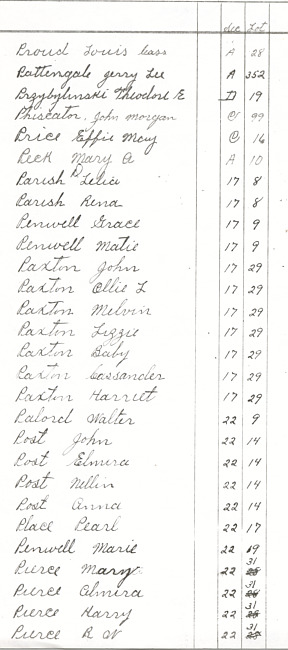 Sec Lot
Proud Louis Cass A 28
Pattengale Jerry Lee A 352
Przybylinski Theodore E D 19
Phiscator, John Morgan C 99
Price Effie May C 16
Peck Mary A 10
Parish Lelia 17 8
Parish Rena 17 8
Penwell Grace 17 9
Penwell Matie 17 9
Paxton John 17 29
Paxton Ollie L 17 29
Paxton Melvin 17 29
Paxton Lizzie 17 29
Paxton Baby 17 29
Paxton Cassander 17 29
Paxton Harriet 17 29
Palord Walter 22 9
Post John 22 14
Post Elmira 22 14
Post Nellie 22 14
Post Anna 22 14
Place Pearl 22 17
Penwell Marie 22 19
Pierce Mary 22 31
Pierce Almira 22 31
Pierce Harry 22 31
Pierce R W 22 31